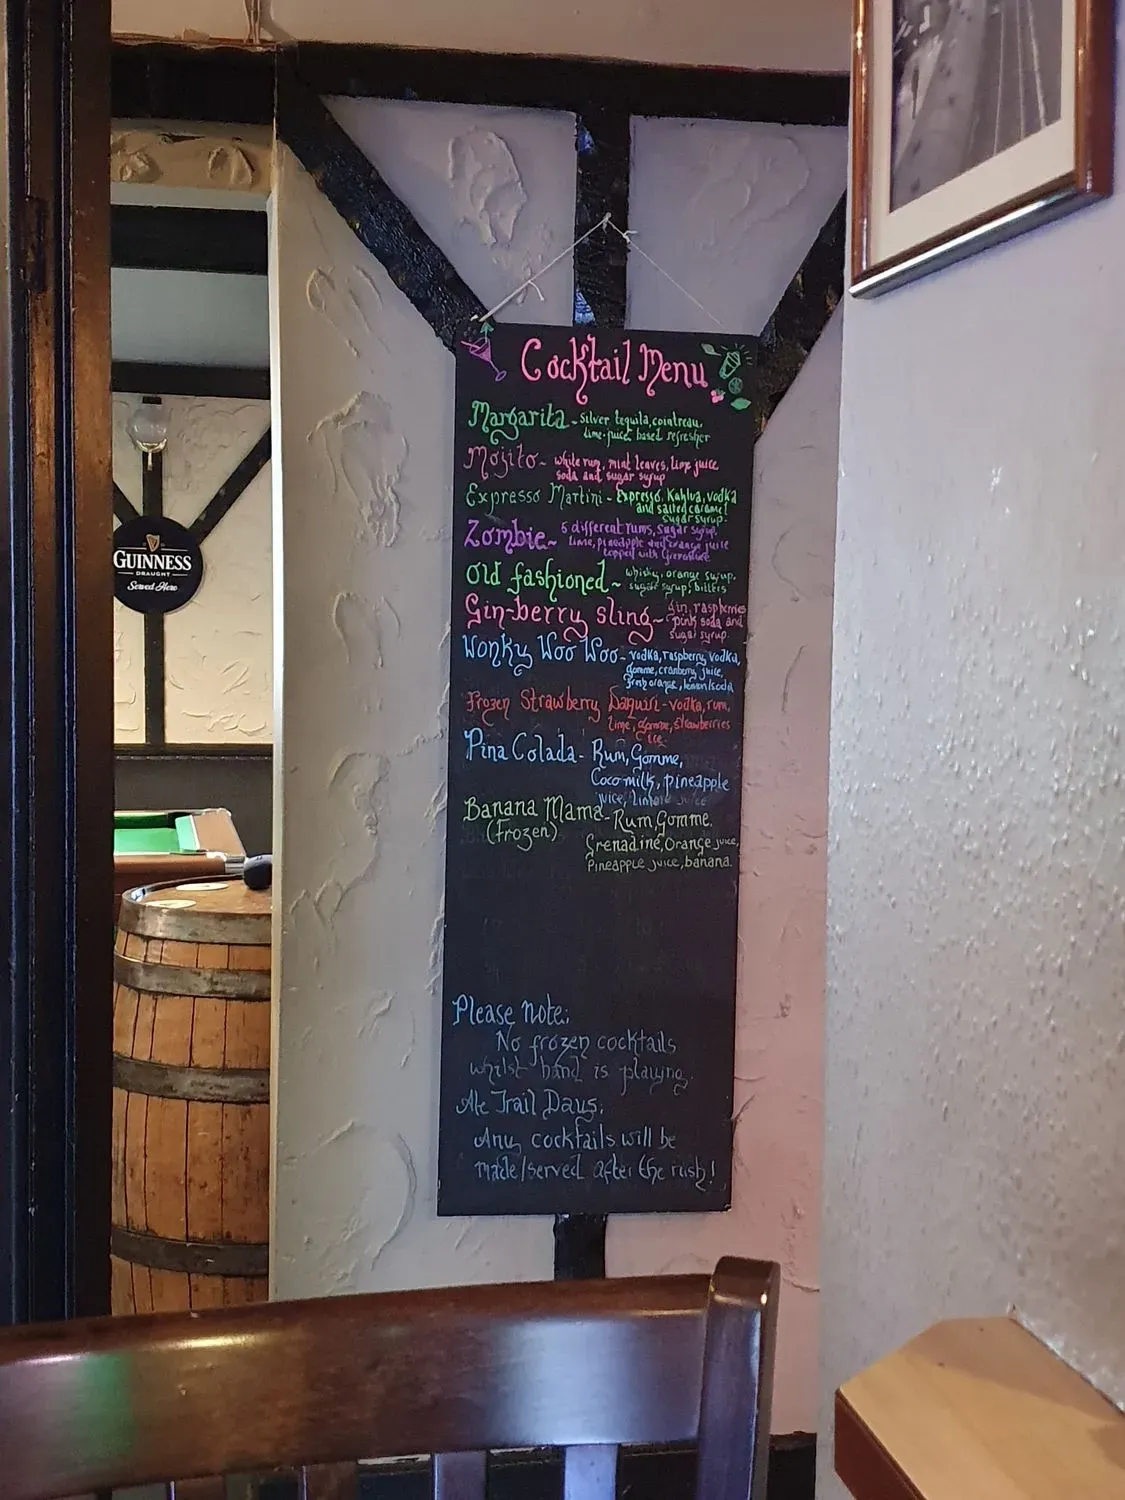 Cocktail Menu
Margarita - Silver tequila, cointreau,
lime-juice, based refresher
Mojito ~ white rum, mint leaves, lime juice
soda and sugar syrup
Expresso Martini - Expresso, Kahlua, vodka
and salted caramel
sugar syrup.
Zombie ~ 5 different rums, sugar syrup,
lime, pineapple and orange juice
topped with Grenadine
Old fashioned ~ whisky, orange syrup,
sugar syrup, bitters
Gin-berry sling ~ gin, raspberries
pink soda and
sugar syrup.
Wonky Woo Woo - vodka, raspberry vodka,
gomme, cranberry juice,
fresh orange, lemon/soda
Frozen Strawberry Daquiri - vodka, rum,
lime, gomme, strawberries
ice
Pina Colada - Rum, Gomme,
Coco milk, pineapple
juice,
Banana Mama - Rum, Gomme.
(Frozen)
Grenadine, Orange juice,
Pineapple juice, banana.
Please note:
No frozen cocktails
whilst band is playing.
Ale Trail Days.
Any cocktails will be
made/served after the rush!
GUINNESS
DRAUGHT
Served Here